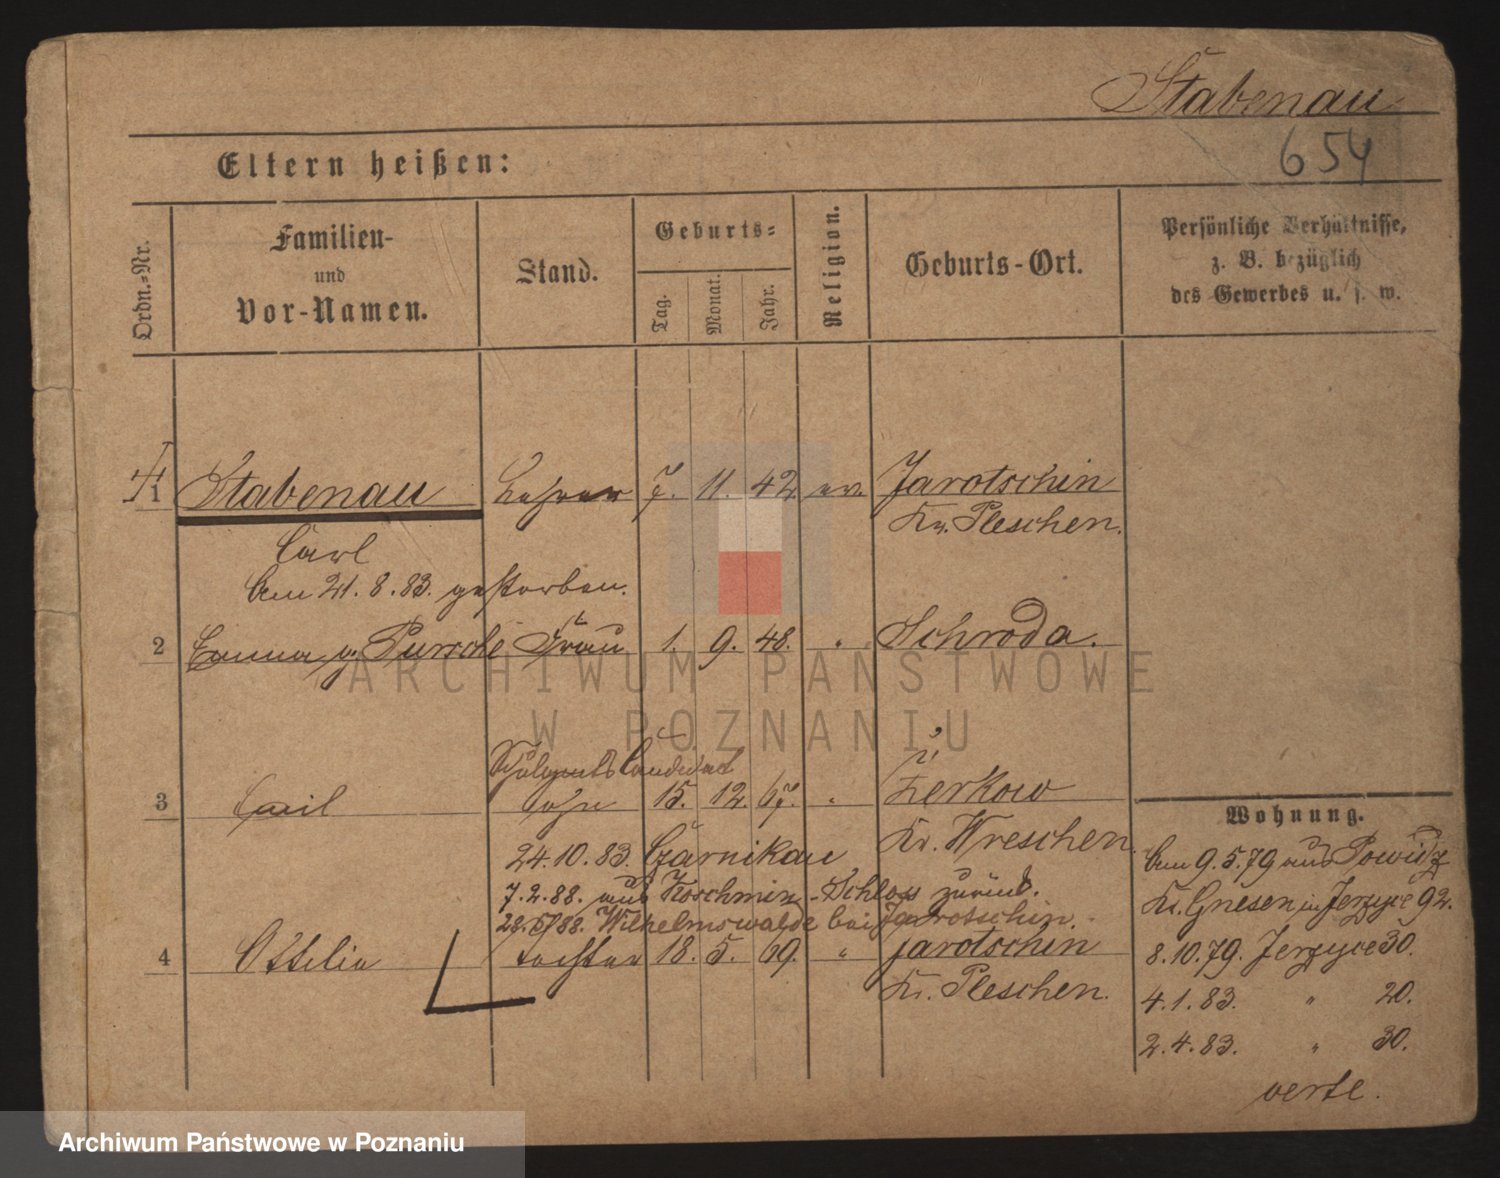 Stabenau
654
Eltern heißen:
Ordn.-Nr.
Familien-
und
Vor-Namen.
Stand.
Geburts-
Tag.
Monat.
Jahr.
Religion.
Geburts-Ort.
Persönliche Verhältnisse,
z. B. bezüglich
des Gewerbes u. s. w.
1 Stabenau Lehrer 7. 11. 42 ev. Jarotschin
Kr. Pleschen.
Carl
Am 21. 8. 83. gestorben.
2 Emma g. Frau 1. 9. 48. " Schroda.
Schulamts Candidat
3 Emil Sohn 15. 12. 67. " Zerkow
Kr. Wreschen.
24. 10. 83. Czarnikau
7. 2. 88. aus Koschmin-Schloss zurück.
28. 5/88. Wilhelmswalde bei Jarotschin.
4 Ottilie Tochter 18. 5. 69. " Jarotschin
Kr. Pleschen.
Wohnung.
Am 9. 5. 79 aus Powidz
Kr. Gnesen in Jerzyce 92.
8. 10. 79. Jerzyce 30.
4. 1. 83. " 20.
2. 4. 83. " 30.
verte.
ARCHIWUM PAŃSTWOWE
W POZNANIU
Archiwum Państwowe w Poznaniu